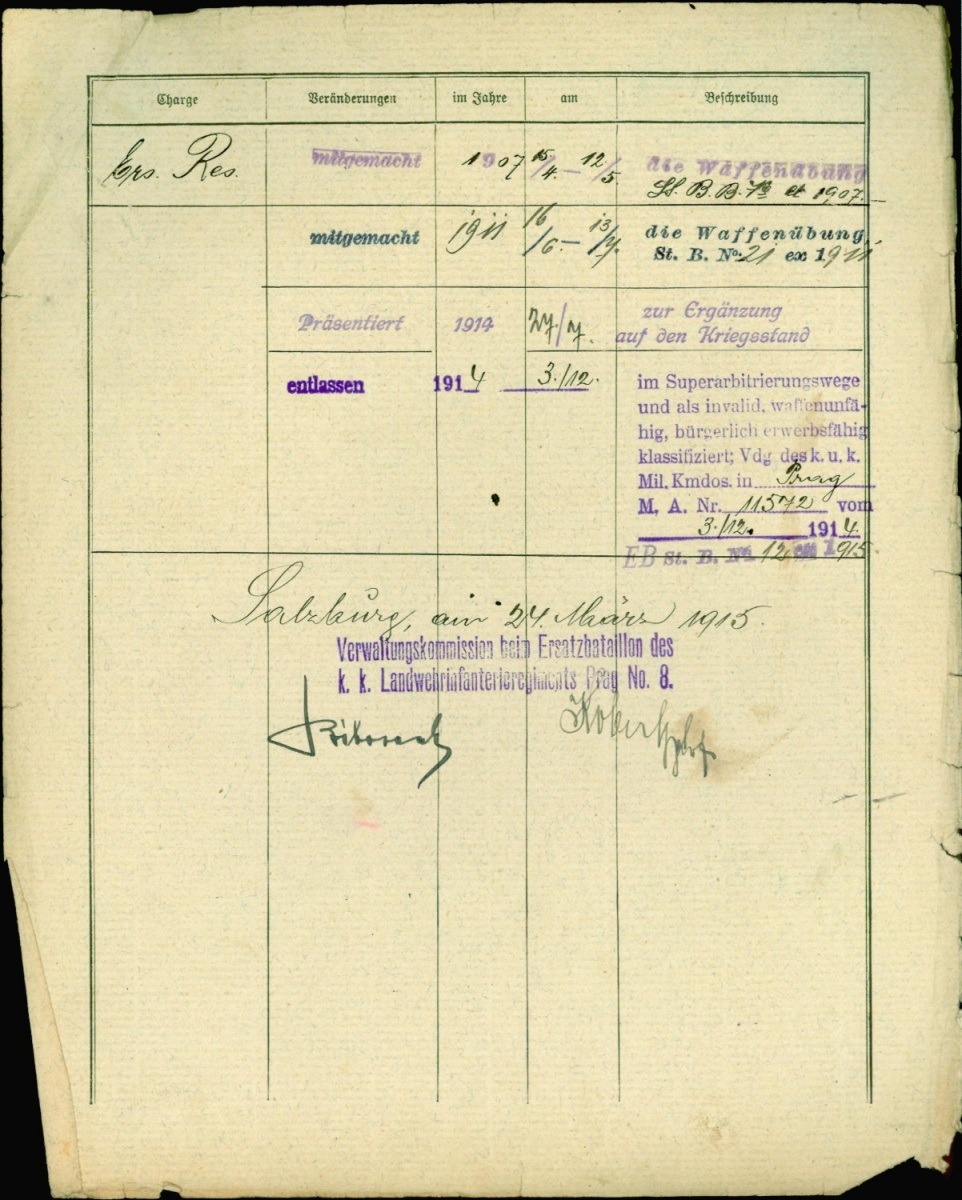 Charge Veränderungen im Jahre am Beschreibung
Ers. Res. mitgemacht 1907 15/4. – 12/5. die Waffenübung
St. B. B. 73 ex 1907.
mitgemacht 1911 16/6. – 13/7. die Waffenübung,
St. B. No. 21 ex 1911
Präsentiert 1914 27/7. zur Ergänzung
auf den Kriegsstand
entlassen 1914 3./12. im Superarbitrierungswege
und als invalid, waffenunfä-
hig, bürgerlich erwerbsfähig
klassifiziert; Vdg des k. u. k.
Mil. Kmdos. in Prag
M. A. Nr. 11572 vom
3./12. 1914.
EB St. B. No. 12 ex 1915
Salzburg, am 24. März 1915.
Verwaltungskommission beim Ersatzbataillon des
k. k. Landwehrinfanterieregiments Prag No. 8.